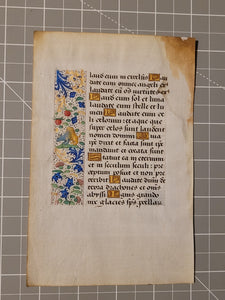 laus eum in excelsis Lau
date eum omnes angeli eius
laudate eum oēs virtutes eius
Laudate eum sol et luna
laudate eum stelle et lumen
Laudate eum celi
celorum : et aque que
super celos sunt laudent
nomen domini Quia ip̄e
dixit et facta sunt ip̄e
mandauit et creata sunt
Statuit ea in eternum
et in seculum seculi : pre
ceptum posuit et non pre
teribit Laudate dn̄m de
terra dracones et om̄s
abyssi Ignis grando
nix glacies sp̄s procellarum